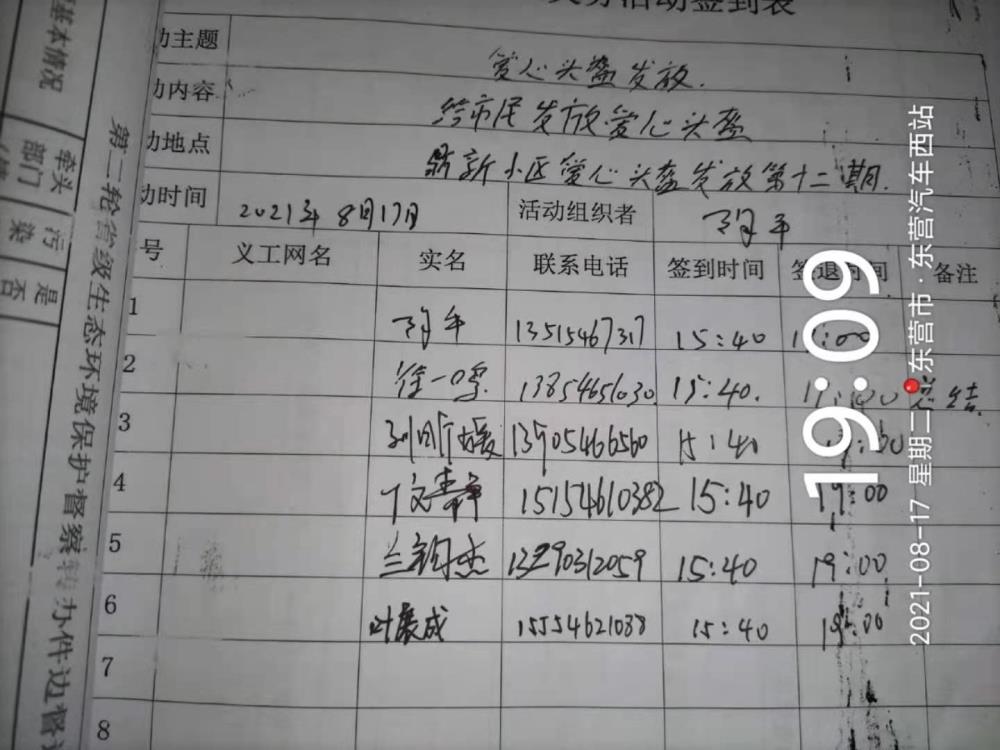 活动签到表
动主题 爱心头盔发放.
动内容 给市民发放爱心头盔
动地点 新小区爱心头盔发放第十二期.
动时间 2021年8月17月 活动组织者 平
号 义工网名 实名 联系电话 签到时间 签退时间 备注
1 平 13515467317 15:40
2 徐一 13854651030 15:40. 总结
3 刘 媛 13905466560 15:40
4 丁文静 15154610382 15:40 19:00
5 兰 杰 13290312059 15:40 19:00
6 叶 成 15554621038 15:40 19:00
7
8
基本情况
牵头部门
污染
是否
第二轮省级生态环境保护督察转办件边督
19:09
2021-08-17 星期二 东营市·东营汽车西站